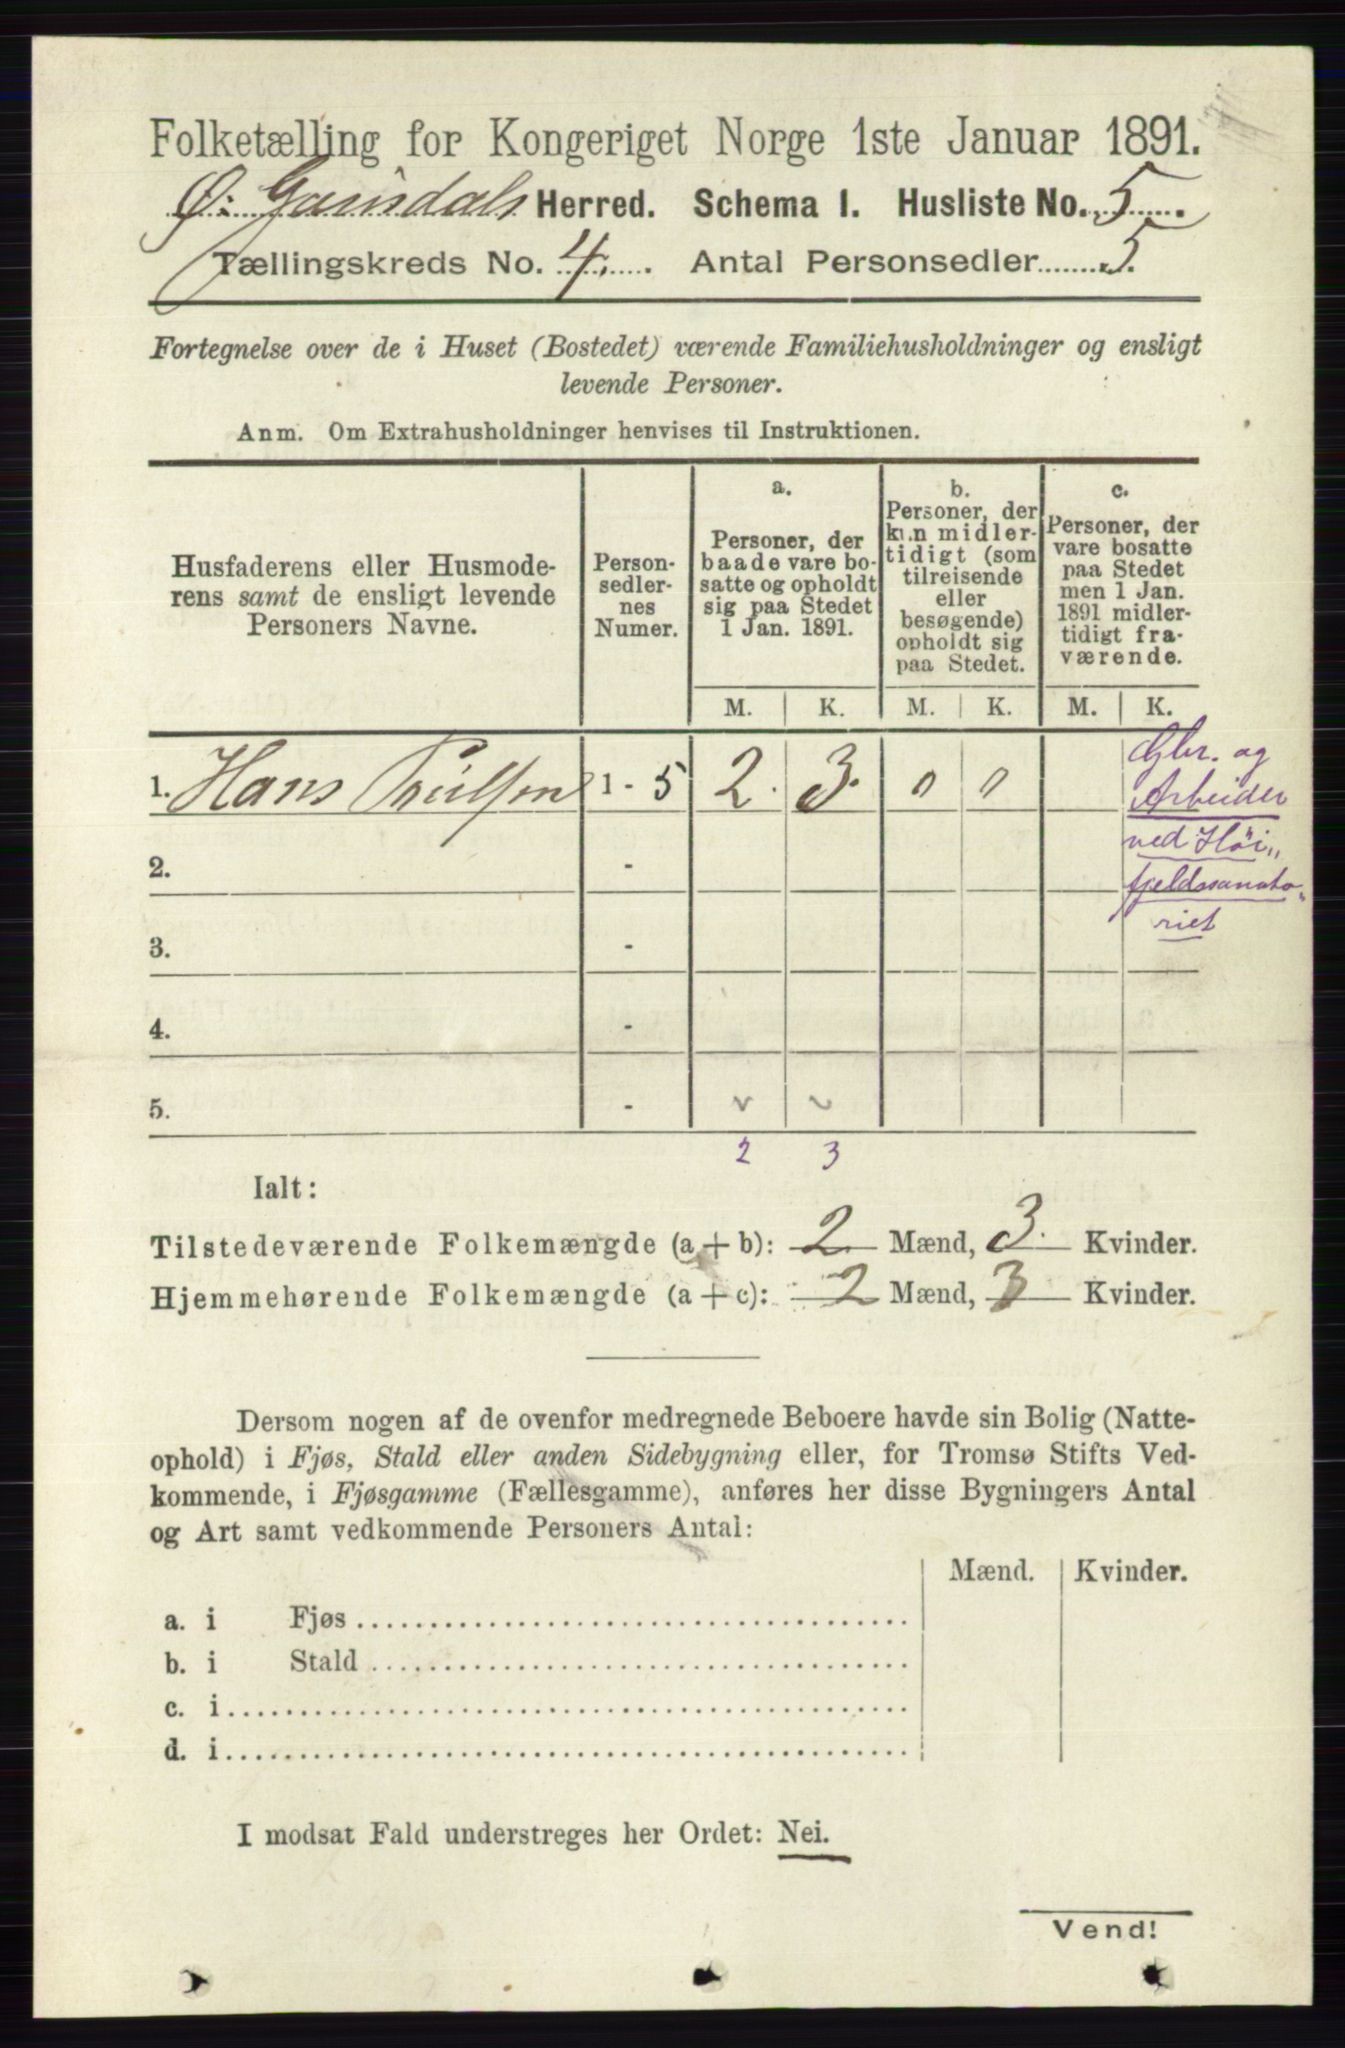 Folketælling for Kongeriget Norge 1ste Januar 1891.
Ø. Gausdals Herred. Schema 1. Husliste No. 5
Tællingskreds No. 4. Antal Personsedler 5.
Fortegnelse over de i Huset (Bostedet) værende Familiehusholdninger og ensligt
levende Personer.
Anm. Om Extrahusholdninger henvises til Instruktionen.
Husfaderens eller Husmode-
rens samt de ensligt levende
Personers Navne.
Person-
sedler-
nes
Numer.
a.
Personer, der
baade vare bo-
satte og opholdt
sig paa Stedet
1 Jan. 1891.
b.
Personer, der
kun midler-
tidigt (som
tilreisende
eller
besøgende)
opholdt sig
paa Stedet.
c.
Personer, der
vare bosatte
paa Stedet
men 1 Jan.
1891 midler-
tidigt fra-
værende.
M. K. M. K. M. K.
1. Hans 1 - 5 2. 3. 0 0
Gbr. og
Arbeider
ved Høi„
fjeldssanato„
riet
2. -
3. -
4. -
5. -
2 3
Ialt:
Tilstedeværende Folkemængde (a + b): 2 Mænd, 3. Kvinder.
Hjemmehørende Folkemængde (a + c): 2 Mænd, 3 Kvinder.
Dersom nogen af de ovenfor medregnede Beboere havde sin Bolig (Natte-
ophold) i Fjøs, Stald eller anden Sidebygning eller, for Tromsø Stifts Ved-
kommende, i Fjøsgamme (Fællesgamme), anføres her disse Bygningers Antal
og Art samt vedkommende Personers Antal:
Mænd. Kvinder.
a. i Fjøs
b. i Stald
c. i
d. i
I modsat Fald understreges her Ordet: Nei.
Vend!